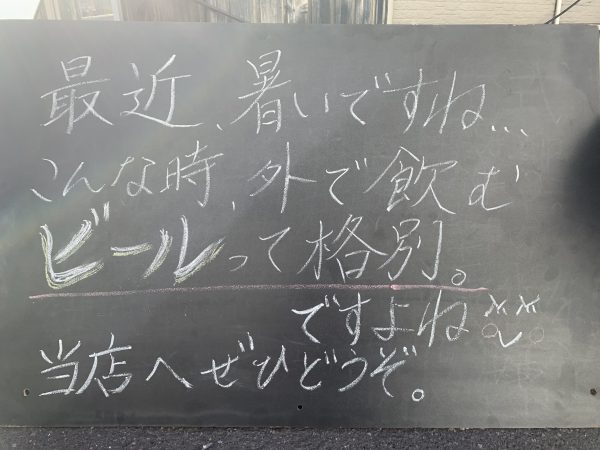 最近、暑いですね...
こんな時、外で飲む
ビールって格別。
ですよね
当店へぜひどうぞ。